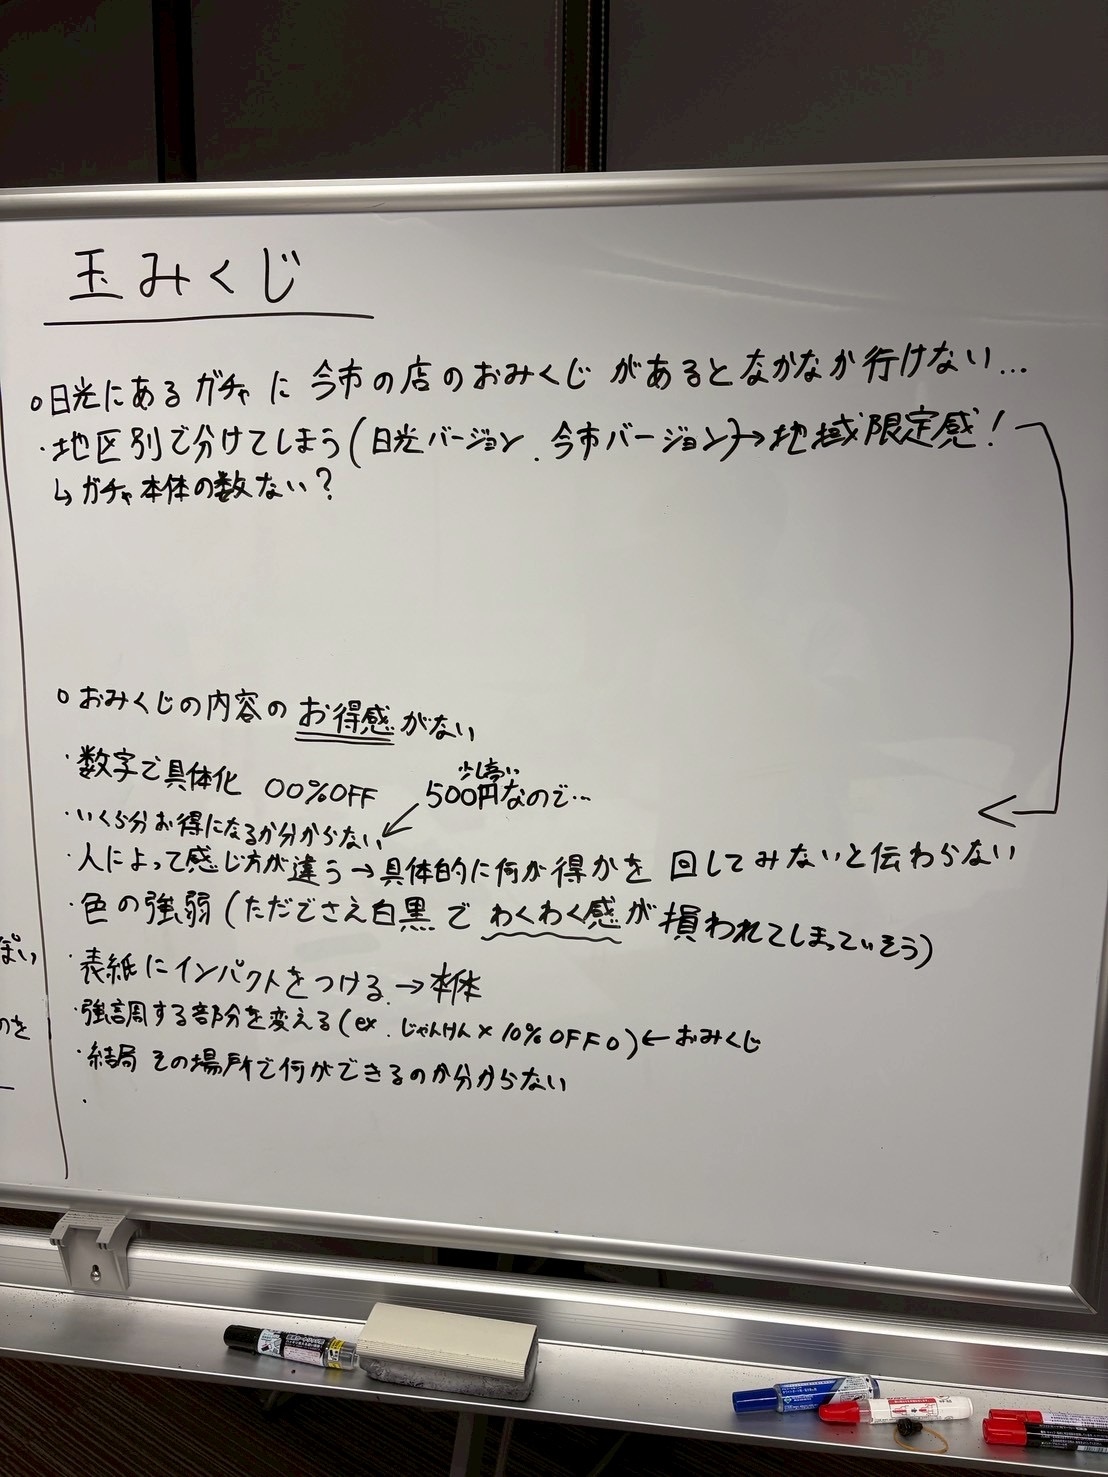 玉みくじ
○日光にあるガチャに今市の店のおみくじがあるとなかなか行けない…
・地区別で分けてしまう(日光バージョン.今市バージョン)→地域限定感!
↳ガチャ本体の数ない?
○おみくじの内容のお得感がない
・数字で具体化 ○○%OFF
少し高い
500円なので…
・いくら分お得になるか分からない
・人によって感じ方が違う→具体的に何が得かを回してみないと伝わらない
・色の強弱(ただでさえ白黒でわくわく感が損われてしまっていそう)
・表紙にインパクトをつける.→本体
・強調する部分を変える(ex.じゃんけん×10%OFF○)←おみくじ
・結局その場所で何ができるのか分からない
・
ぽい
のを